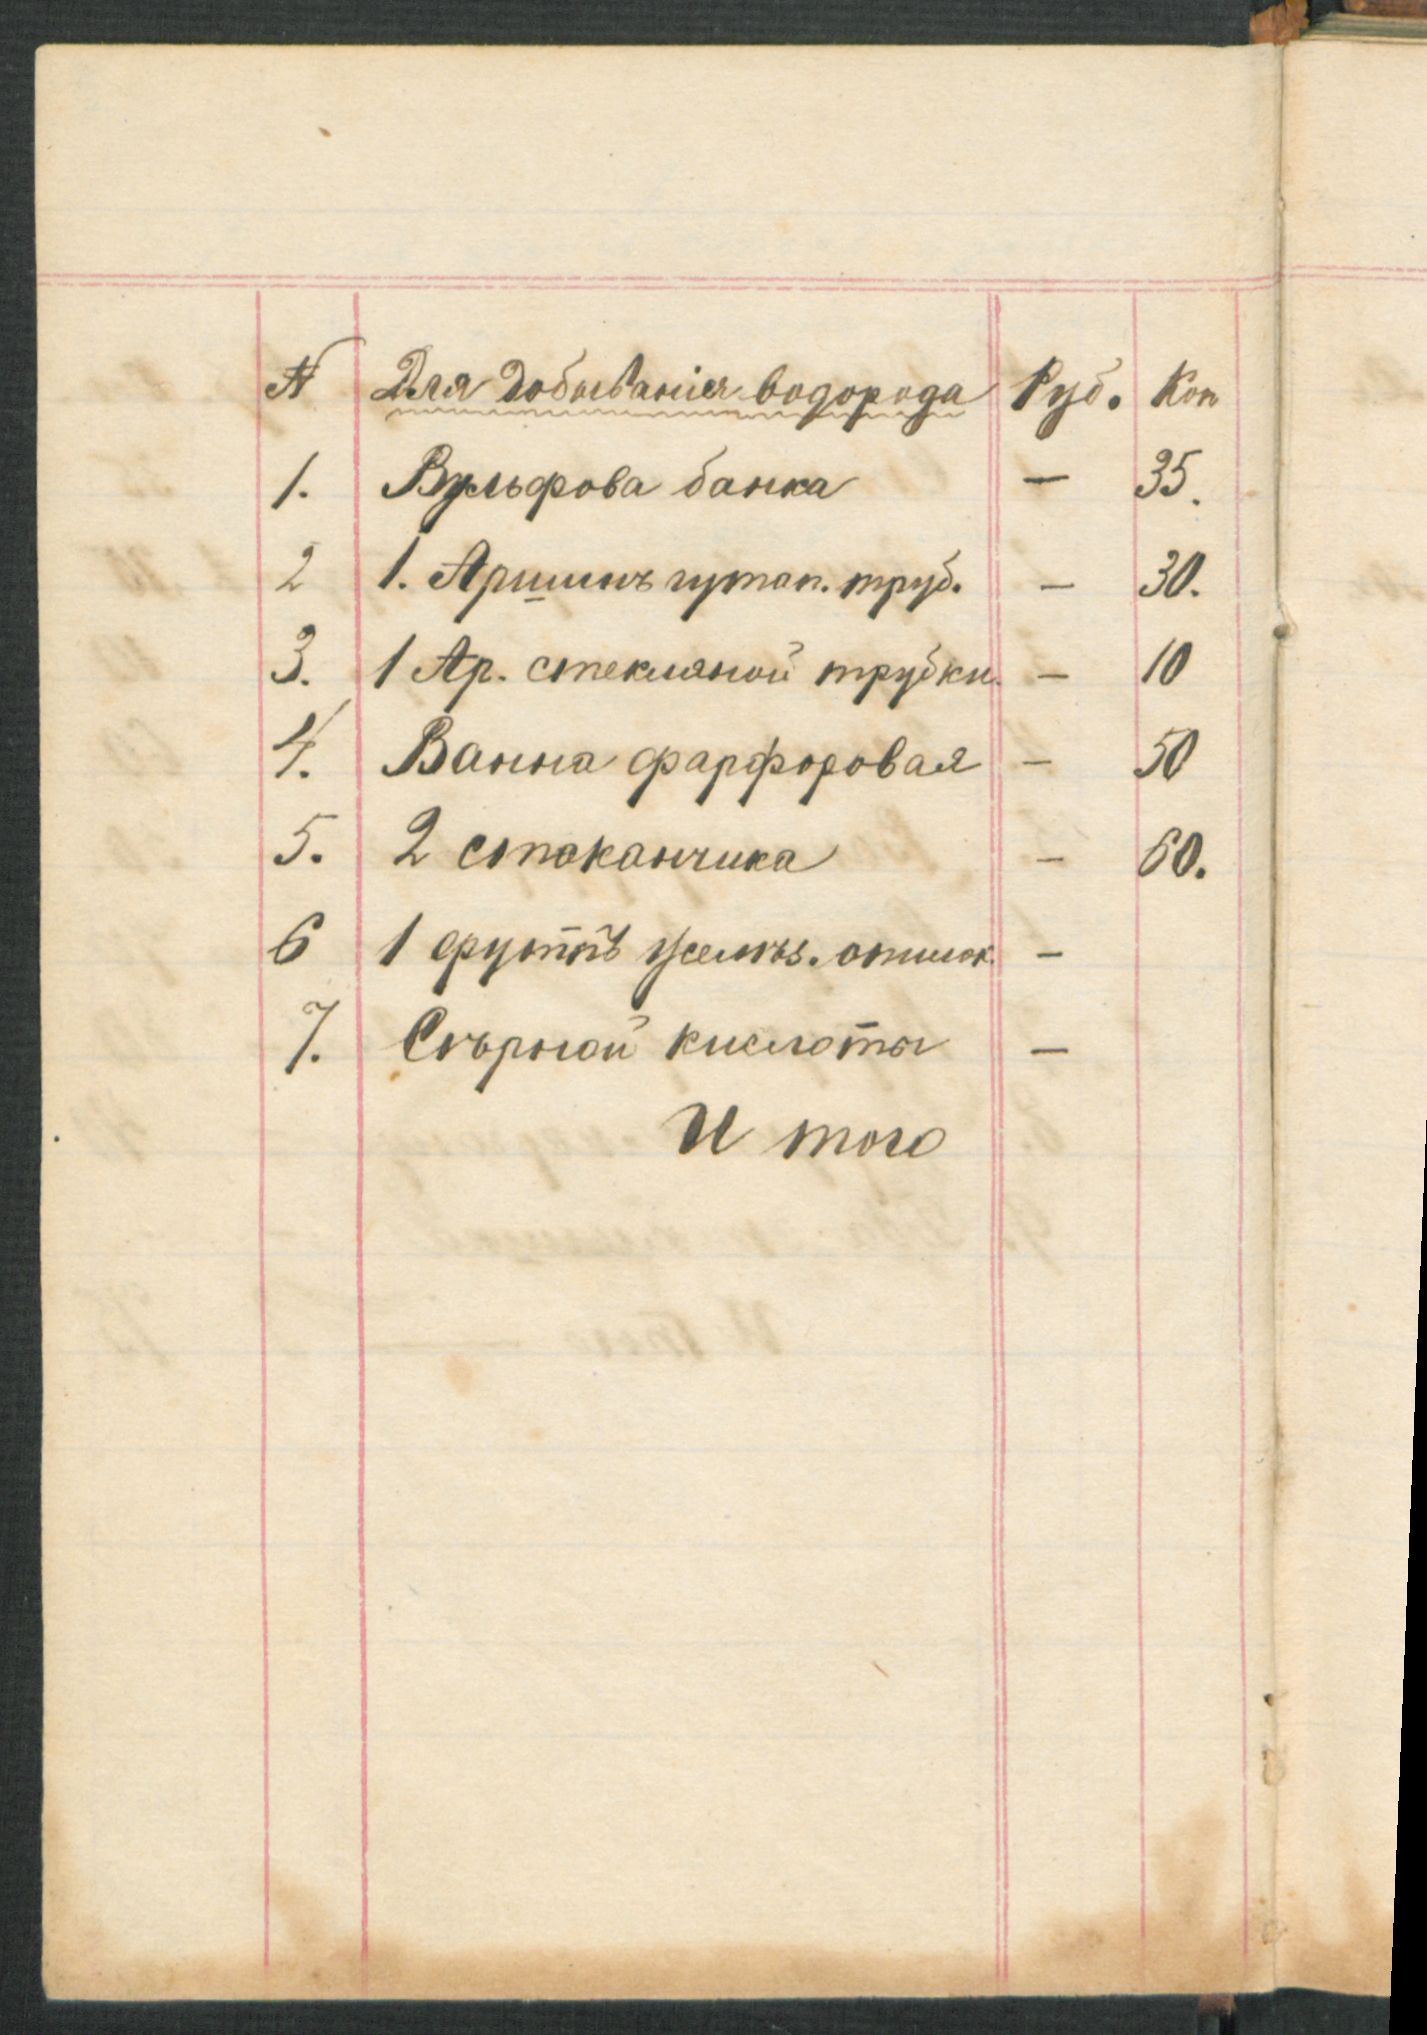 № Для добыванія водорода Руб. Коп
1. Вульфова банка — 35.
2 1. Аршинъ гутап. труб. — 30.
3. 1 Ар. стекляной трубки. — 10
4. Ванна фарфоровая — 50
5. 2 стаканчика — 60.
6 1 фунтъ желѣз. опилок. —
7. Сѣрной кислоты —
И того